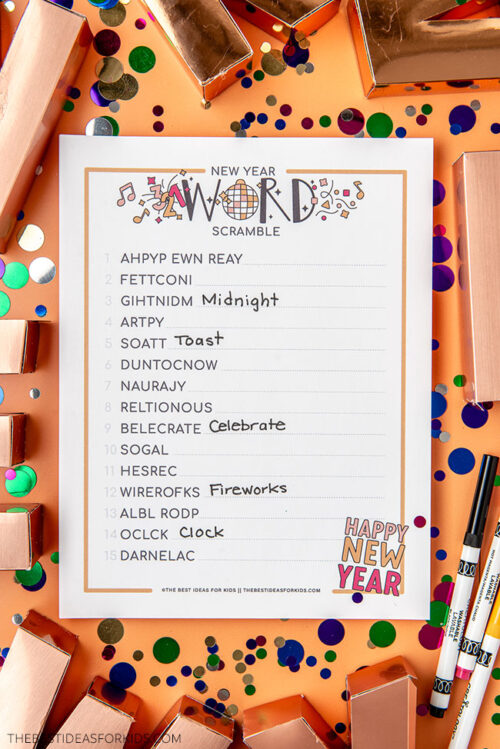 NEW YEAR
WORD
SCRAMBLE
1 AHPYP EWN REAY
2 FETTCONI
3 GIHTNIDM Midnight
4 ARTPY
5 SOATT Toast
6 DUNTOCNOW
7 NAURAJY
8 RELTIONOUS
9 BELECRATE Celebrate
10 SOGAL
11 HESREC
12 WIREROFKS Fireworks
13 ALBL RODP
14 OCLCK Clock
15 DARNELAC
HAPPY
NEW
YEAR
©THE BEST IDEAS FOR KIDS || THEBESTIDEASFORKIDS.COM
WASHABLE
LAVABLE
THEBESTIDEASFORKIDS.COM